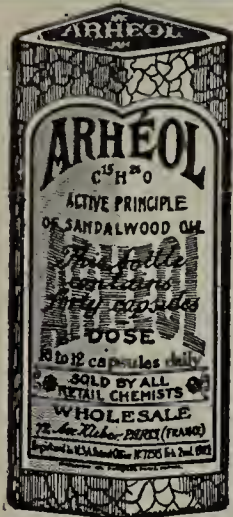 ARHEOL
ARHÉOL
C¹⁵H²⁶O
ACTIVE PRINCIPLE
OF SANDALWOOD OIL
This bottle
contains
forty capsules
DOSE
10 to 12 capsules daily
SOLD BY ALL
RETAIL CHEMISTS
WHOLESALE
72 Ave. Kleber. PARIS (FRANCE)